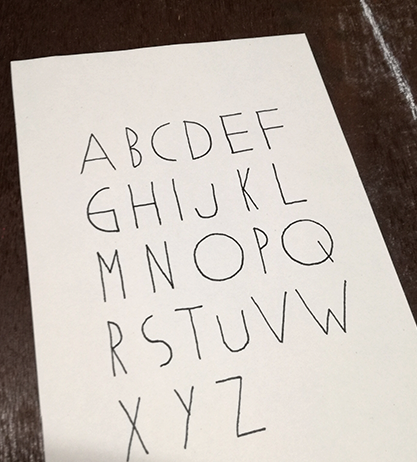 ABCDEF
GHIJKL
MNOPQ
RSTUVW
XYZ